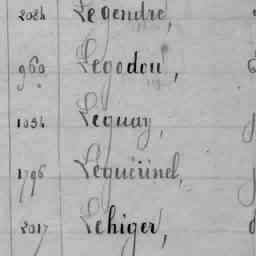 2024 Legendre,
960 Legodou,
1054 Leguay,
1796 Leguérinel,
2017 Lehiger,